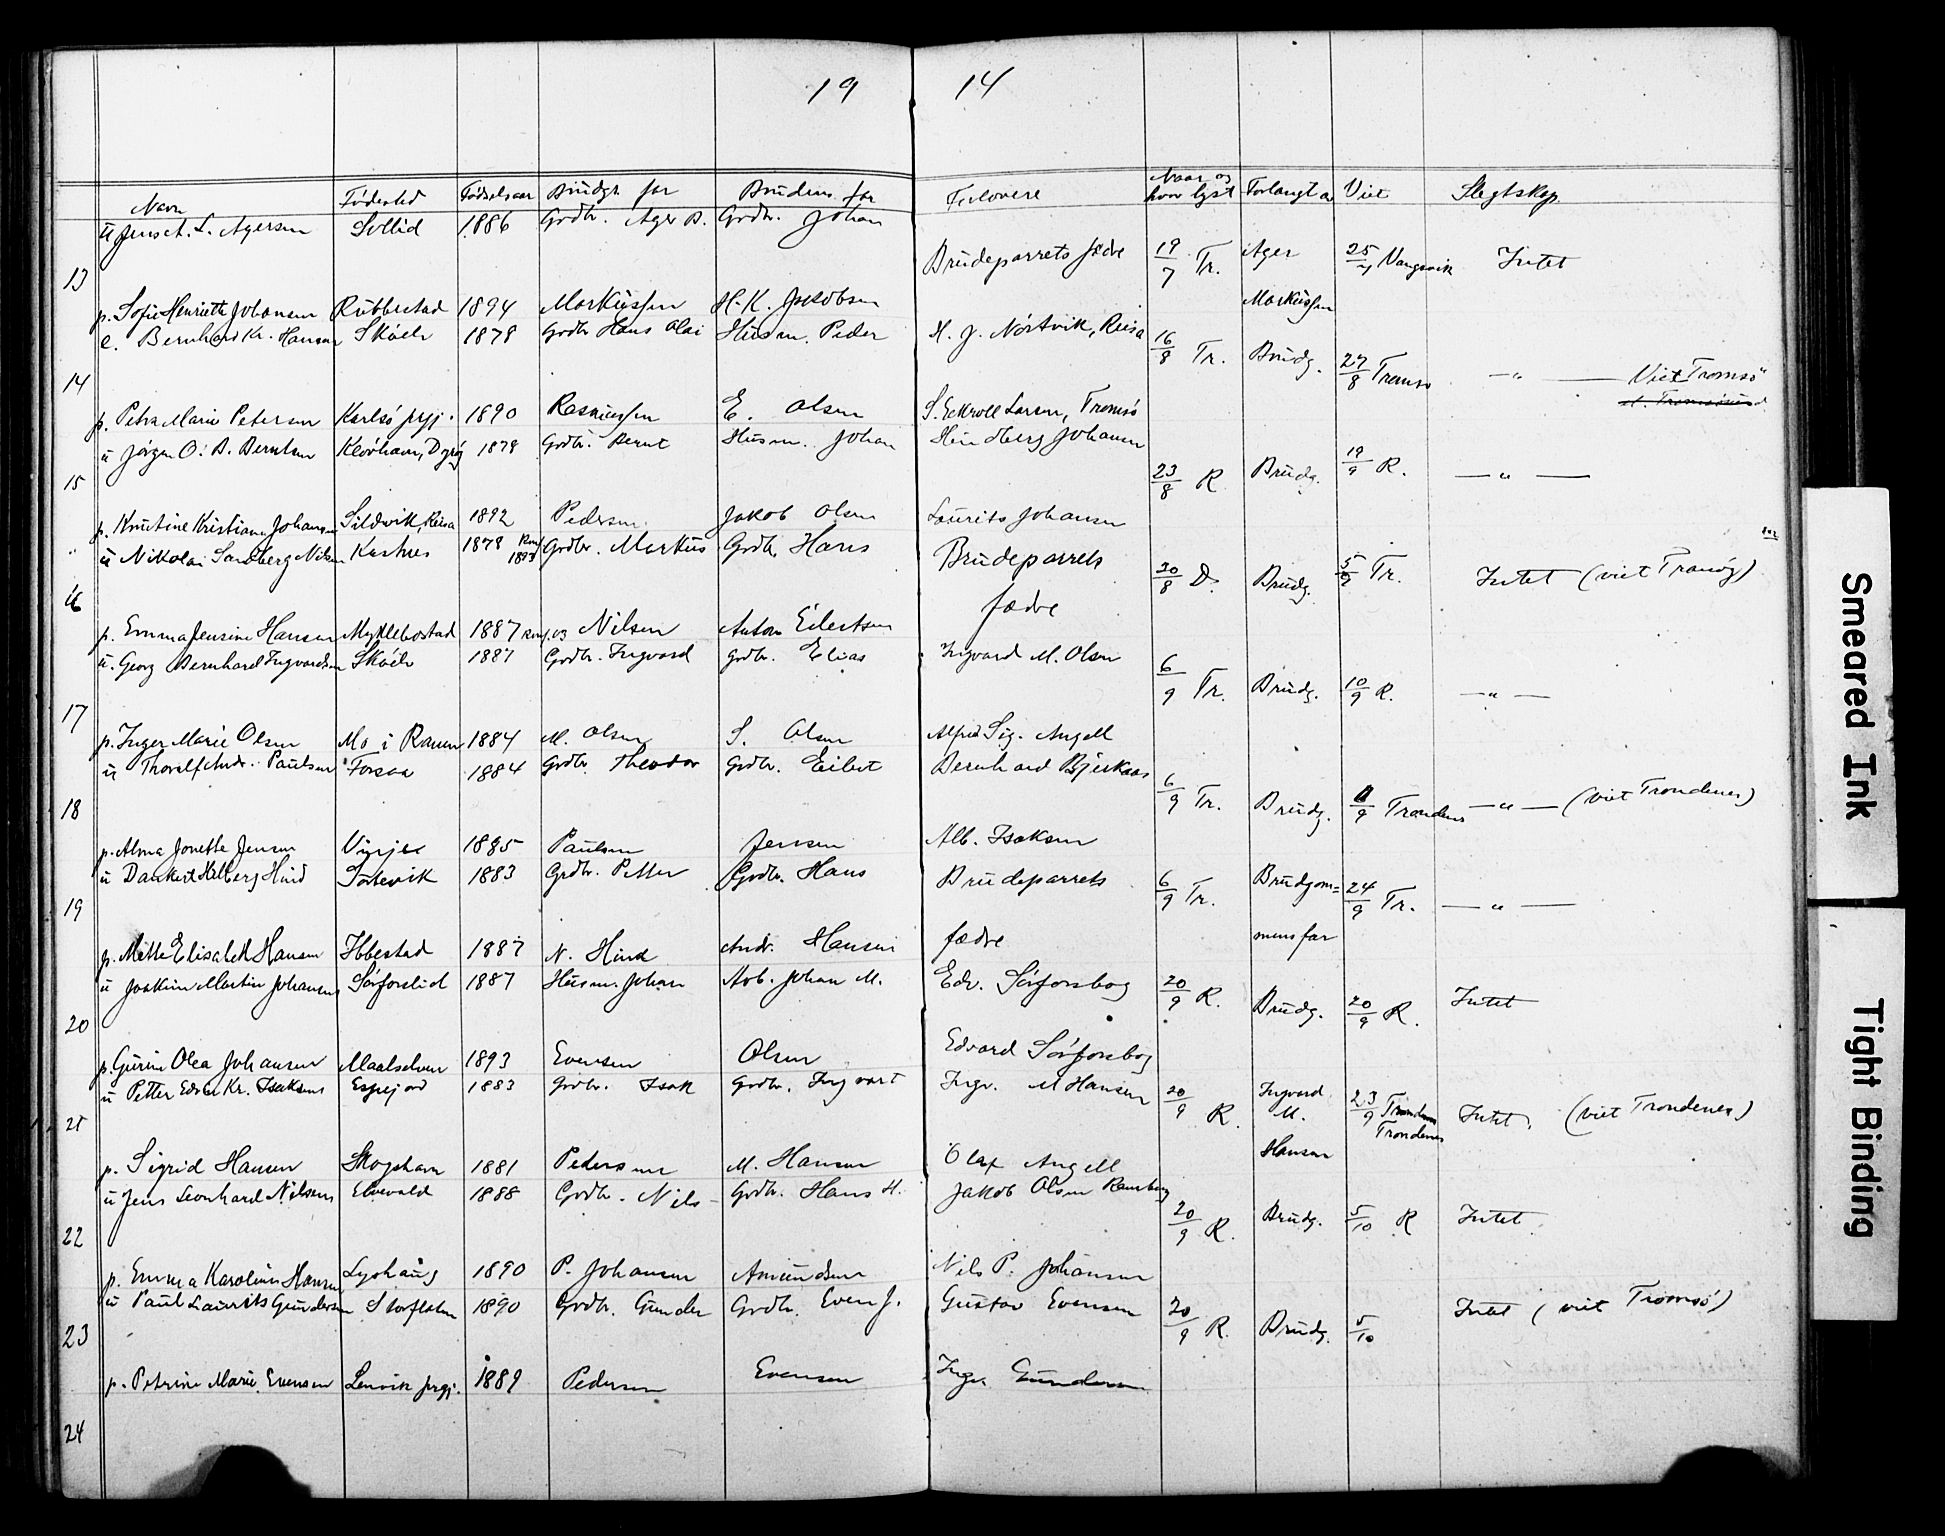 19 14
Navn Födested Födselsaar Brudgs far Brudens far Forlovere Naar og hvor lyst Forlangt av Viet Slegtskap
u Jens A. L. Agersen Sollid 1886 Grdbr. Ager B. Grdbr. Johan Brudeparrets fædre 19/7 Tr. Ager 25/7 Vangsvik Intet
13
p. Sofie Henriette Johansen Rubbestad 1894 Markussen H. K. Jakobsen Markussen
e. Bernhard Kr. Hansen Skóelv 1878 Grdbr Hans Olai Husm. Peder H. J. Nórtvik, Reisa 16/8 Tr. Brudg. 27/8 Tromsö — " — Viet Tromsö
14
p. Petra Marie Petersen Karlsö prgj. 1890 Rasmussen E. Olsen S. Eckroll Larsen, Tromsö
u Jörgen O. B. Berntsen Klóvhavn, Dyröy 1878 Grdbr. Bernt Husm. Johan Hindberg Johansen 23/8 R Brudg. 19/9 R. — " —
15
p. Knutine Kristianna Johansen Sildvik, Reisa 1892 Pedersen Jakob Olsen Laurits Johansen
u Nikolai Sandberg Nilsen Kastnes 1878 Konf 1893 Grdbr. Markus Grdbr. Hans Brudeparrets 30/8 D. Brudg. 5/9 Tr. Intet (viet Tranöy)
16 fædre
p. Emma Jensine Hansen Myklebostad 1887 Konf. 03 Nilsen Anton Eilertsen
u. Georg Bernhard Ingvardsen Skóelv 1887 Grdbr. Ingvard Grdbr. Elias Ingvard M. Olsen 6/9 Tr. Brudg. 10/9 R. — " —
17
p. Inger Marie Olsen Mo i Ranen 1884 M. Olsen S. Olsen Alfred Sig. Angell
u Thoralf Andr. Paulsen Forsaa 1884 Grdbr. Theodor Grdbr. Eilert Bernhard Bjerkaas 6/9 Tr. Brudg. /9 Trondenes — " — (viet Trondenes)
18
p. Alma Jonette Jensen 1885 Paulsen Jensen Alb. Isaksen
u Dankert Helberg Hind Sörtevik 1883 Grdbr. Petter Grdbr. Hans Brudeparrets 6/9 Tr. Brudgom= 24/9 Tr. — " —
19
p. Mette Elisabeth Hansen Ibbestad 1887 N. Hind Andr. Hansen fædre mens far
u Joakim Martin Johansens Sörforslid 1887 Husm. Johan Arb. Johan M. Edv. Sörforsbog 20/9 R. Brudg. 20/9 R. Intet
20
p. Gurine Olea Johansen Maalselven 1893 Evensen Olsen Edvard Sörforsbog
u Petter Edvin Kr. Isaksens Espejord 1883 Grdbr. Isak Grdbr. Ingvart Ingv. M Hansen 20/9 R. Ingvard M. 23/9 Trondenes Intet. (viet Trondenes)
21
p. Sigrid Hansen Skogshavn 1881 Pedersens M. Hansen Olaf Angell Hansen
u Jens Leonhard Nilsens Elvevold 1888 Grdbr. Nils Grdbr. Hans H. Jakob Olsen Ramberg 20/9 R. Brudg. 5/10 R Intet
22
p. Emma Karoline Hansen Lyshaug 1890 P. Johansen Amundsen Nils P. Johansen
u Paul Laurits Gundersen Storflaten 1890 Grdbr. Gunder Grdbr. Even J. Gustav Evensen 20/9 R. Brudg. 5/10 Intet (viet Tromsö)
23
p. Petrine Marie Evensen Lenvik prgj. 1889 Pedersen Evensen Ingv. Gundersen
24
Smeared Ink
Tight Binding